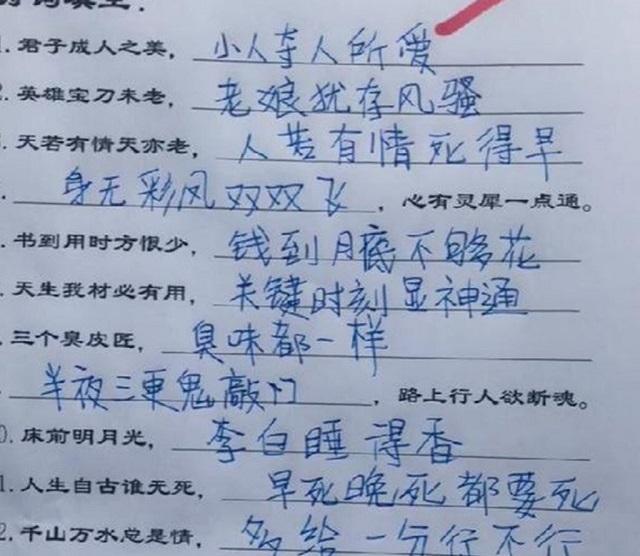 1. 君子成人之美，小人夺人所爱
2. 英雄宝刀未老，老娘犹存风骚
天若有情天亦老，人若有情死得早
身无彩风双双飞，心有灵犀一点通。
. 书到用时方恨少，钱到月底不够花
. 天生我材必有用，关键时刻显神通
. 三个臭皮匠，臭味都一样
半夜三更鬼敲门，路上行人欲断魂。
0. 床前明月光，李白睡得香
1. 人生自古谁无死，早死晚死都要死
2. 千山万水总是情，多给一分行不行